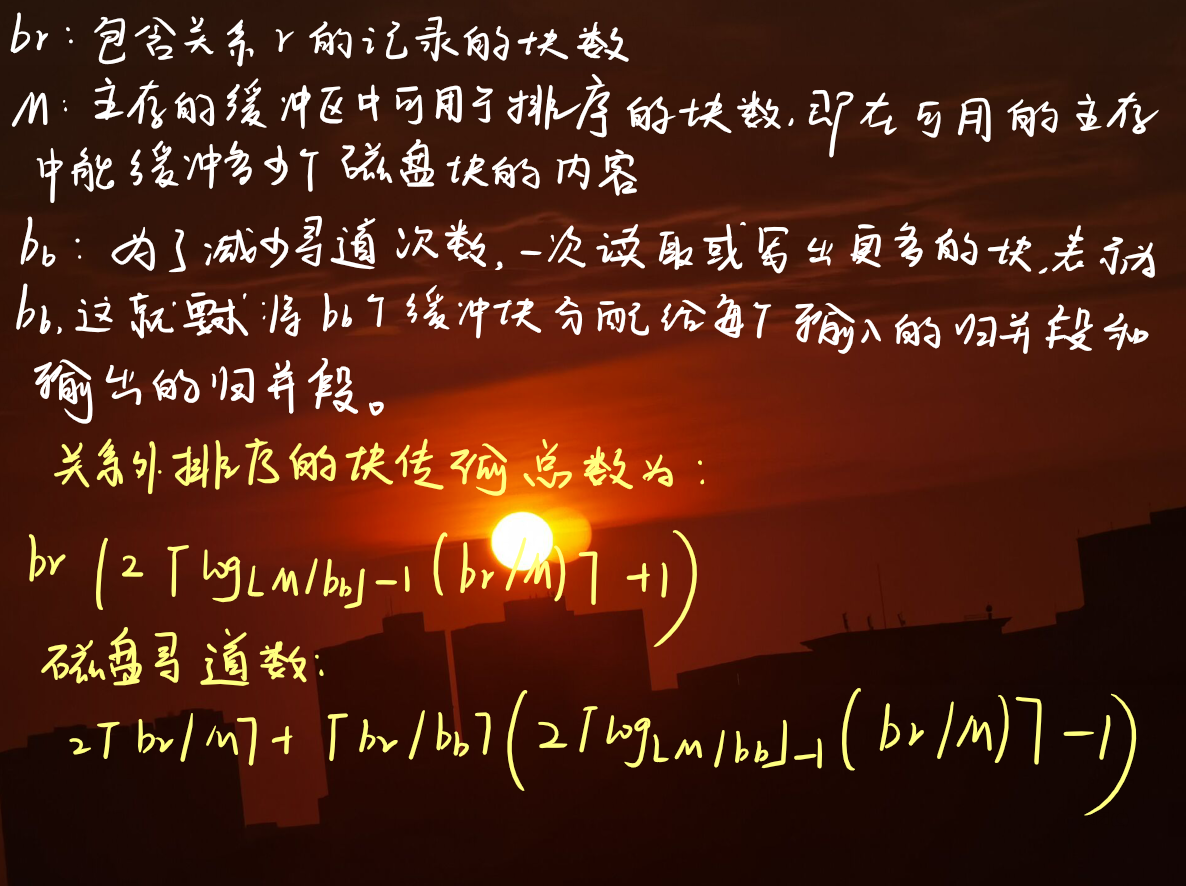 br：包含关系r的记录的块数
M：主存的缓冲区中可用于排序的块数，即在可用的主存
中能缓冲多少个磁盘块的内容
bb：为了减少寻道次数，一次读取或写出更多的块，表示为
bb，这就要求：将bb个缓冲块分配给每个输入的归并段和
输出的归并段。
关系外排序的块传输总数为：
br (2⌈log⌊M/bb⌋-1 (br/M)⌉ +1)
磁盘寻道数：
2⌈br/M⌉ + ⌈br/bb⌉(2⌈log⌊M/bb⌋-1 (br/M)⌉ -1)